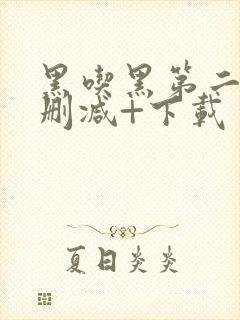 黑喫黑第二
删减+下载
夏日炎炎